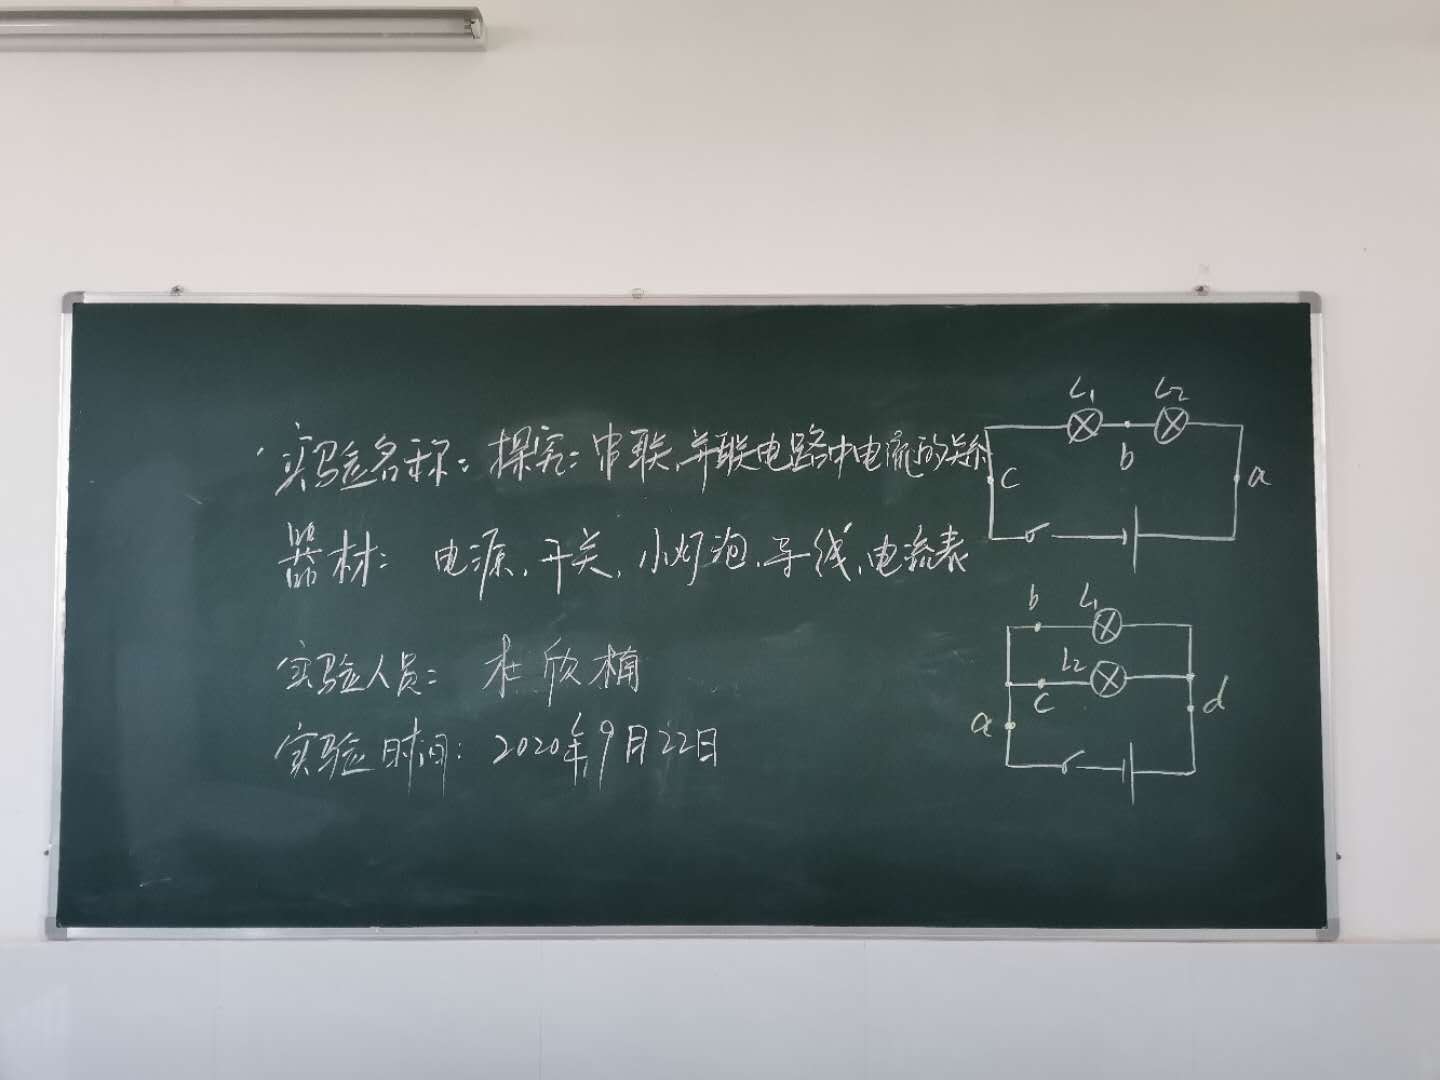 实验名称：探究：串联、并联电路中电流的关系
器材：电源、开关、小灯泡、导线、电流表
实验人员：杜欣楠
实验时间：2020年9月22日
L1 L2
b
c
a
b L1
L2
c
a
d